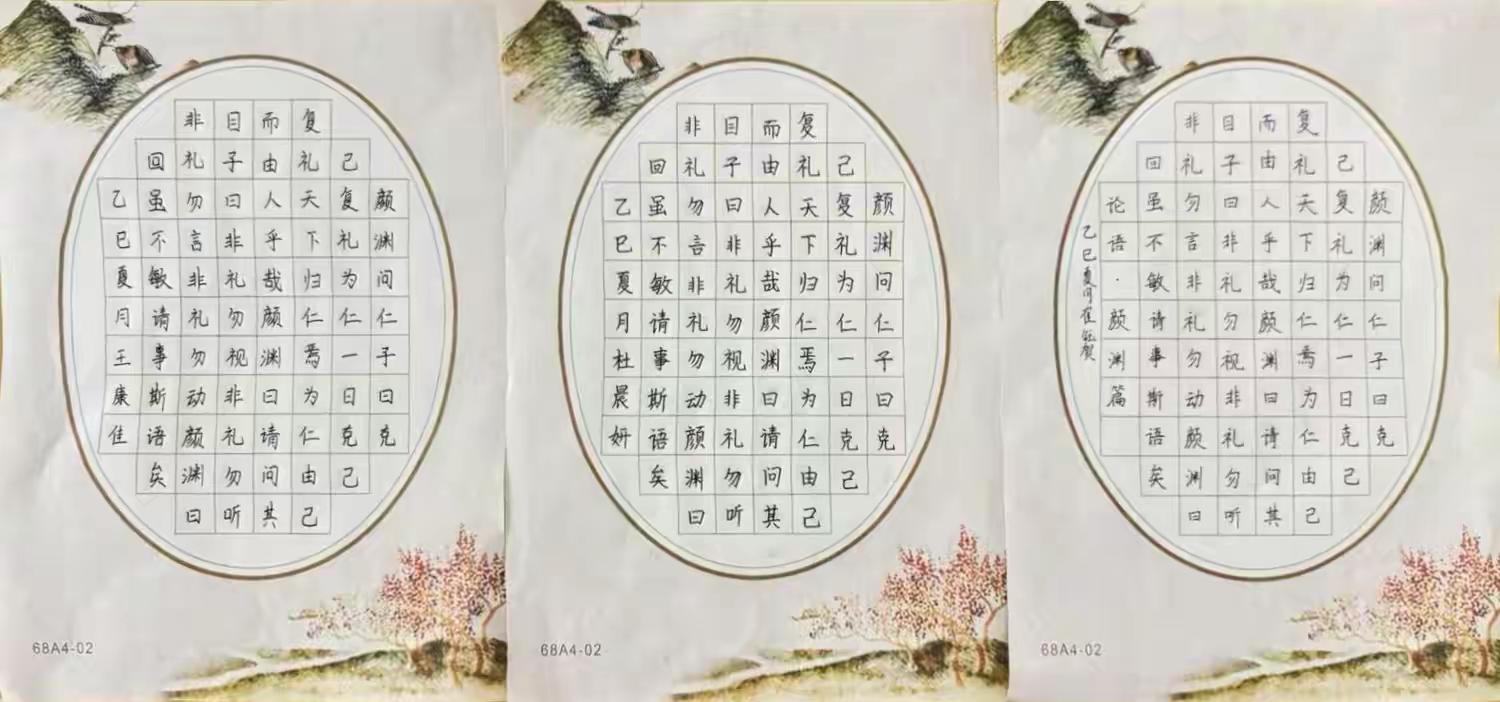 颜渊问仁子曰克
己复礼为仁一日克己
复礼天下归仁焉为仁由己
而由人乎哉颜渊曰请问其
目子曰非礼勿视非礼勿听
非礼勿言非礼勿动颜渊曰
回虽不敏请事斯语矣
乙巳夏月王康佳
68A4-02
颜渊问仁子曰克
己复礼为仁一日克己
复礼天下归仁焉为仁由己
而由人乎哉颜渊曰请问其
目子曰非礼勿视非礼勿听
非礼勿言非礼勿动颜渊曰
回虽不敏请事斯语矣
乙巳夏月杜晨妍
68A4-02
颜渊问仁子曰克
己复礼为仁一日克己
复礼天下归仁焉为仁由己
而由人乎哉颜渊曰请问其
目子曰非礼勿视非礼勿听
非礼勿言非礼勿动颜渊曰
回虽不敏请事斯语矣
论语·颜渊篇
乙巳夏月崔
68A4-02